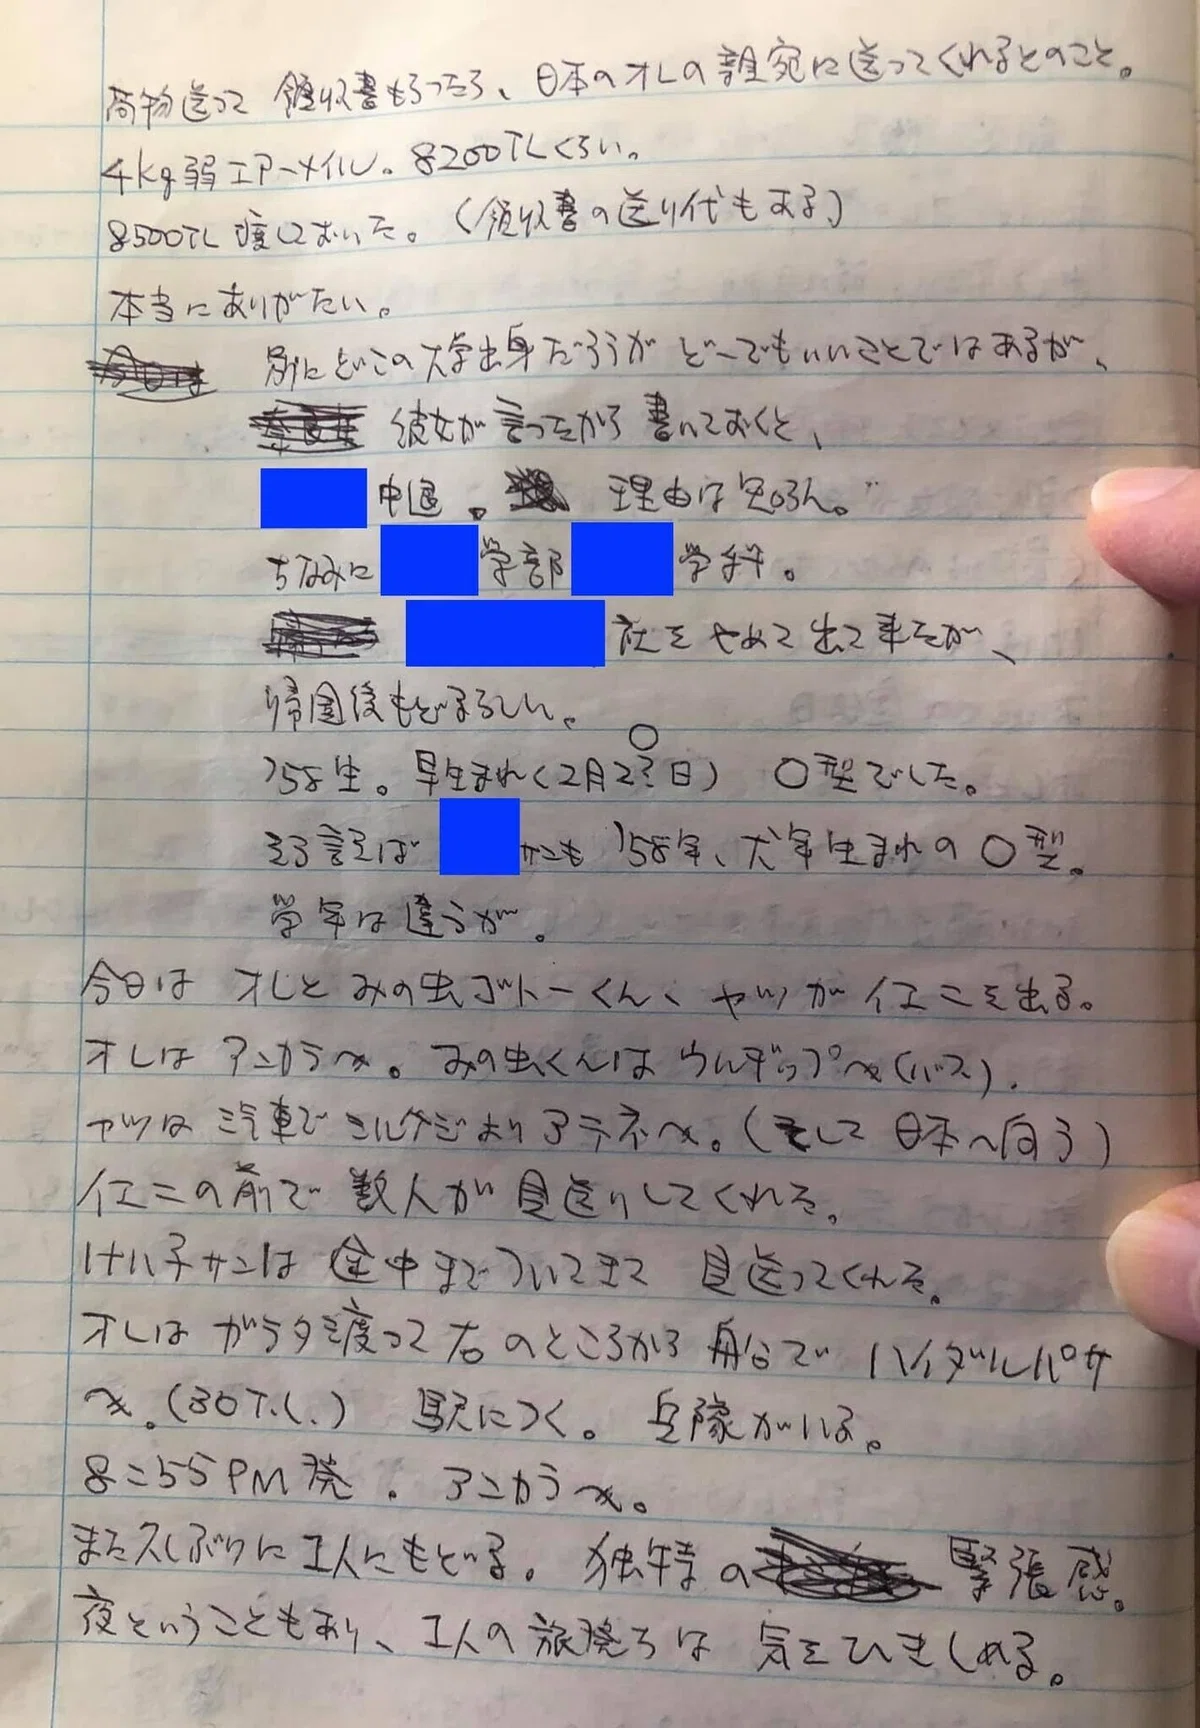 荷物送って 領収書もらったら、日本のオレの誰宛に送ってくれるとのこと。
4kg弱エアーメイル。8200TLくらい。
8500TL渡しておいた。(領収書の送り代もある)
本当にありがたい。
別にどこの大学出身だろうが どーでもいいことではあるが、
彼女が言ったから書いておくと、
中退。理由は知らん。
ちなみに 学部 学科。
社をやめて出て来たが、
帰国後もどるらしい。
'58生。早生まれ(2月2?日) ○型でした。
そう言えば サンも '58年、犬年生まれの○型。
学年は違うが。
今日は オレと みの虫ゴトーくん、ヤツが イエニを出る。
オレは アンカラへ。みの虫くんは ウルギップへ(バス).
ヤツは 汽車で シルケジよりアテネへ。(そして 日本へ向う)
イエニの前で 数人が 見送りしてくれる。
ナハ子サンは 途中までついてきて 見送ってくれる。
オレは ガラタ渡って右のところから 船で ハイダルパサ
へ。(30T.L.) 駅につく。兵隊がいる。
8:55PM発。アンカラへ。
また久しぶりに1人にもどる。独特の 緊張感。
夜ということもあり、1人の旅 は 気をひきしめる。